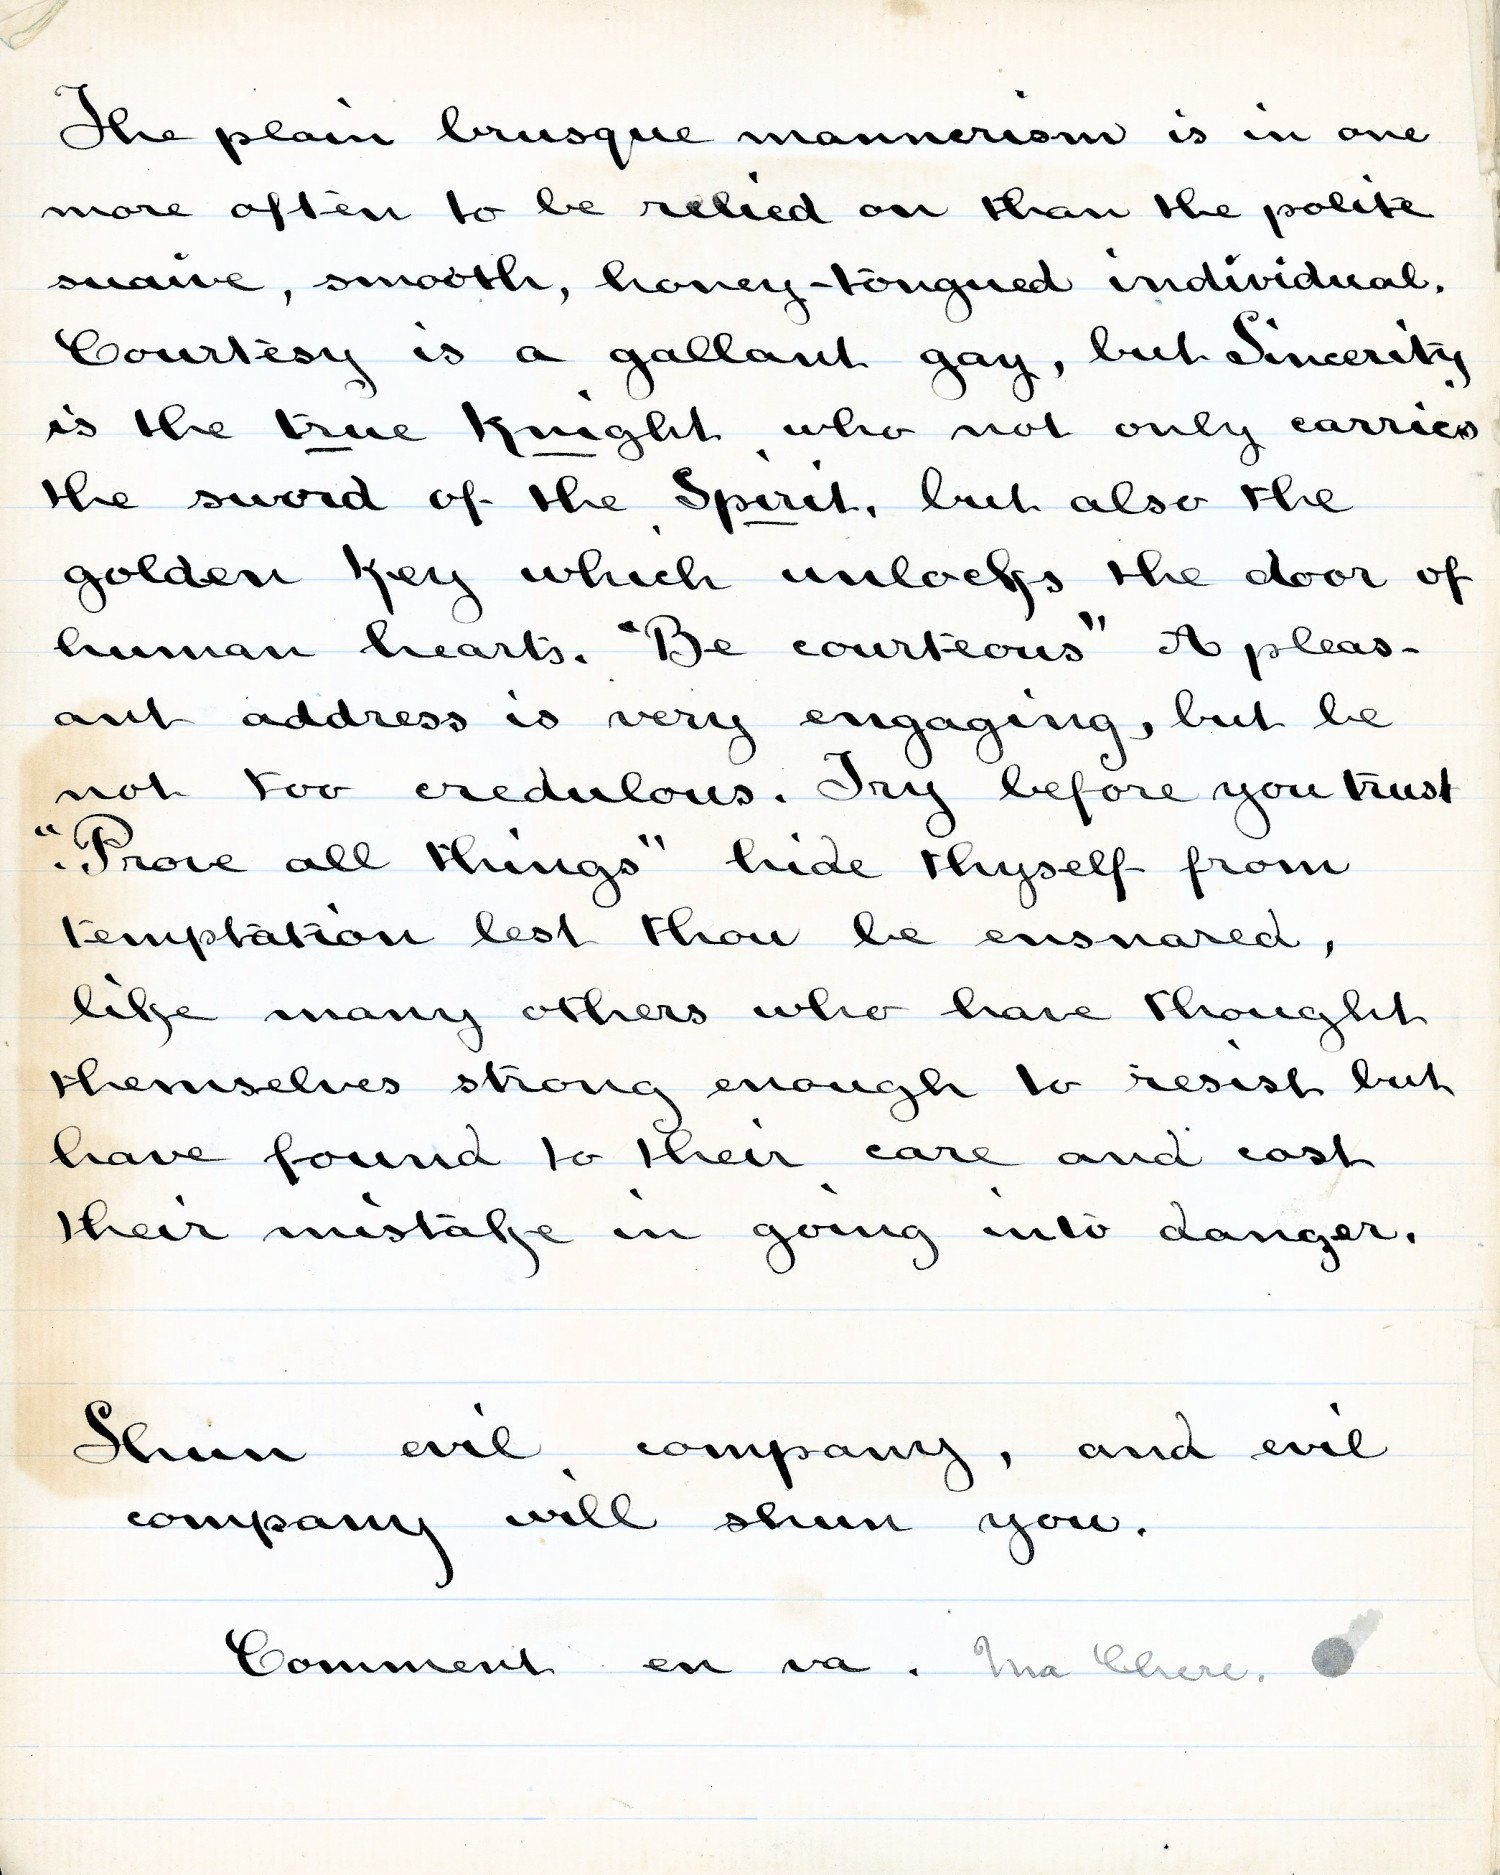 The plain brusque mannerism is in one
more often to be relied on than the polite
suaive, smooth, honey-tongued individual.
Courtesy is a gallant gay, but Sincerity
is the true Knight who not only carries
the sword of the Spirit, but also the
golden Key which unlocks the door of
human hearts. "Be courteous" A pleas-
ant address is very engaging, but be
not too credulous. Try before you trust
"Prove all things" hide thyself from
temptation lest thou be ensnared,
like many others who have thought
themselves strong enough to resist but
have found to their care and cost
their mistake in going into danger.
Shun evil company, and evil
company will shun you.
Comment en va. Ma Chere.